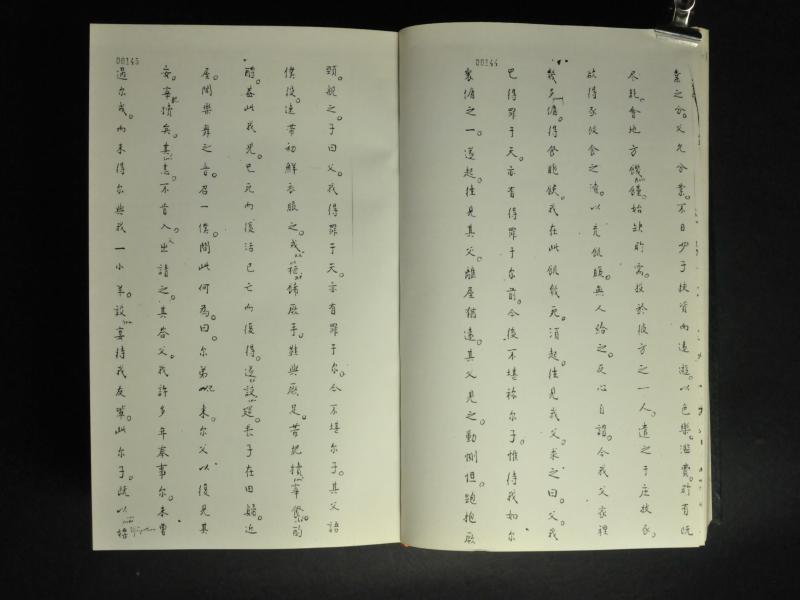 00144
業之分。父允分業。不日少子挾資而遠遊。以色樂。濫費。所有既
尽耗。會地方饑饉。始缺所需。投於彼方之一人。遣之于庄牧豕。
欲得豕佼食之渣。以充飢腸。無人給之。反心自謂。今我父家裡
幾傭。得食飽飫。我在此飢餓死。須起往見我父。求之曰。父我
已得罪于天。亦有得罪于尔前。今後不堪稱尔子。惟待我如尔
裏傭之一。遂起。往見其父。離屋猶遠。其父見之。動惻怛。跑抱厥
00145
頸。親之。子曰。父。我得罪于天。亦有罪于尔。今不堪尔子。其父語
僕役。速帶初鮮衣服之。戒 厥手。鞋與厥足。苦肥犢宰餐。酌
醋。葢此我児。已死而復活。已亡而復得。遂設筵。長子在田。歸近
屋。聞樂舞之音。召一僕。問此何為。曰。尔弟以来。尔父以復見其
安。宰肥犢矣。其恚。不肯入。父出請之。其答父。我許多年奉事尔。未曾
過尔戒。而未得尔與我一小羊。設宴待我友輩。此尔子。既以